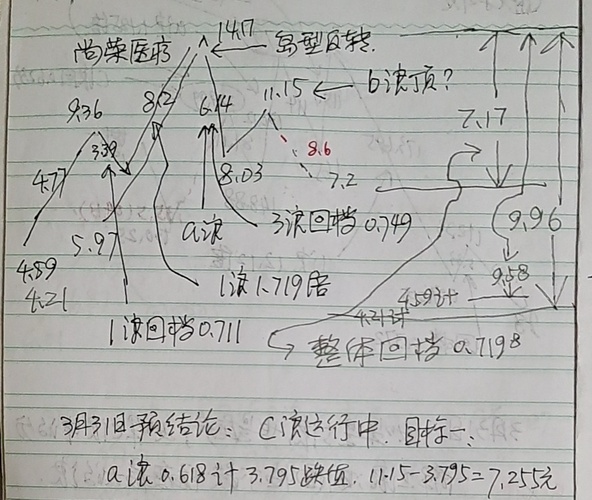 14.17
尚荣医疗 ← 岛型反转.
11.15 ← b浪顶?
9.36 8.2 6.14
7.17
3.39 8.6
4.77 8.03 7.2
5.97 a浪 3浪回档0.749 9.96
4.59 9.58
4.21 1浪1.719倍 4.59计
4.21计
1浪回档0.711
整体回档0.7198
3月31日预结论: C浪运行中. 目标一:
a浪0.618计3.795跌值. 11.15-3.795=7.255元